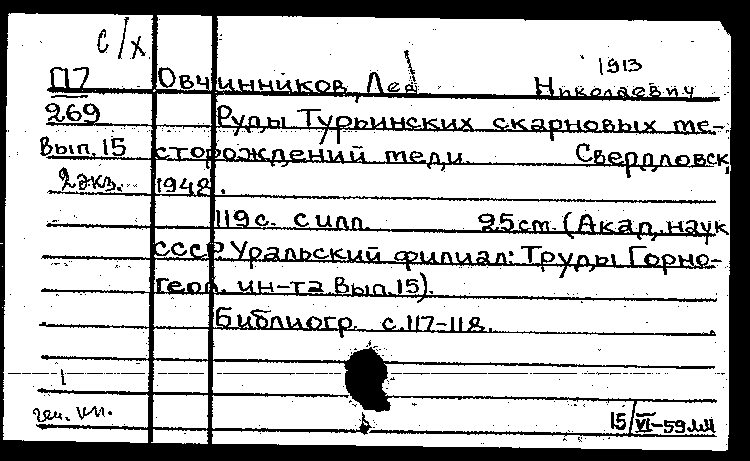 с/х
1913
П7 Овчинников, Лев Николаевич
269 Руды Турьинских скарновых ме-
Вып. 15 сторождений меди. Свердловск,
2 экз. 1948.
119 с. с илл. 25 см. (Акад. наук
СССР Уральский филиал: Труды Горно-
геол. ин-та Вып. 15).
Библиогр. с. 117-118.
1
15/VI-59